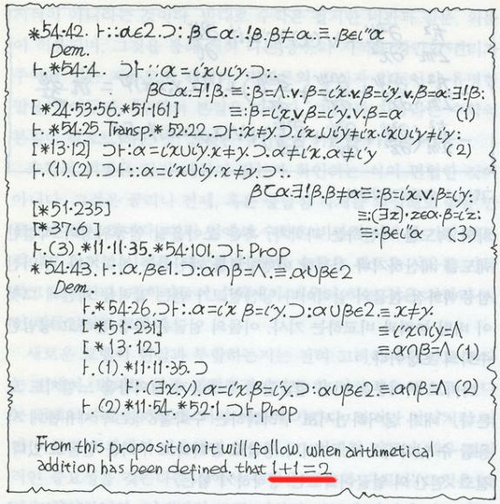 *54·42. ⊢::α∈2.⊃:.β⊂α.∃!β.β≠α.≡.β∈ι"α
Dem.
⊢.*54·4. ⊃⊢::α=ι'x∪ι'y.⊃:.
β⊂α.∃!β.≡:β=Λ.v.β=ι'x.v.β=ι'y.v.β=α:∃!β:
[*24·53·56.*51·161] ≡:β=ι'x.v.β=ι'y.v.β=α (1)
⊢.*54·25.Transp.*52·22.⊃⊢:x≠y.⊃.ι'x∪ι'y≠ι'x.ι'x∪ι'y≠ι'y:
[*13·12] ⊃⊢:α=ι'x∪ι'y.x≠y.⊃.α≠ι'x.α≠ι'y (2)
⊢.(1).(2).⊃⊢::α=ι'x∪ι'y.x≠y.⊃:.
β⊂α.∃!β.β≠α.≡:β=ι'x.v.β=ι'y:
[*51·235] ≡:(∃z).z∈α.β=ι'z:
[*37·6] ≡:β∈ι"α (3)
⊢.(3).*11·11·35.*54·101.⊃⊢.Prop
*54·43.⊢:.α,β∈1.⊃:α∩β=Λ.≡.α∪β∈2
Dem.
⊢.*54·26.⊃⊢:.α=ι'x.β=ι'y.⊃:α∪β∈2.≡.x≠y.
[*51·231] ≡.ι'x∩ι'y=Λ
[*13·12] ≡.α∩β=Λ (1)
⊢.(1).*11·11·35.⊃
⊢:.(∃x,y).α=ι'x.β=ι'y.⊃:α∪β∈2.≡.α∩β=Λ (2)
⊢.(2).*11·54.*52·1.⊃⊢.Prop
From this proposition it will follow, when arithmetical
addition has been defined, that 1+1=2